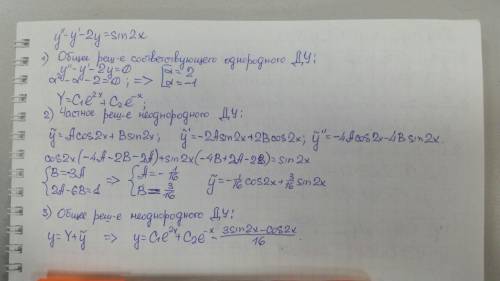 y''-y'-2y=sin2x
1) Общее реш-е соответствующего однородного ДУ:
y''-y'-2y=0
α²-α-2=0; => [α=2
[α=-1
Y=C₁e^{2x}+C₂e^{-x};
2) Частное реш-е неоднородного ДУ:
ỹ=Acos2x+Bsin2x; ỹ'=-2Asin2x+2Bcos2x; ỹ''=-4Acos2x-4Bsin2x.
cos2x(-4A-2B-2A)+sin2x(-4B+2A-2B)=sin2x
{B=-3A => {A=-1/16
{2A-6B=1 {B=3/16 ỹ=-1/16 cos2x+3/16 sin2x
3) Общее реш-е неоднородного ДУ:
y=Y+ỹ => y=C₁e^{2x}+C₂e^{-x}-(3sin2x-cos2x)/16.